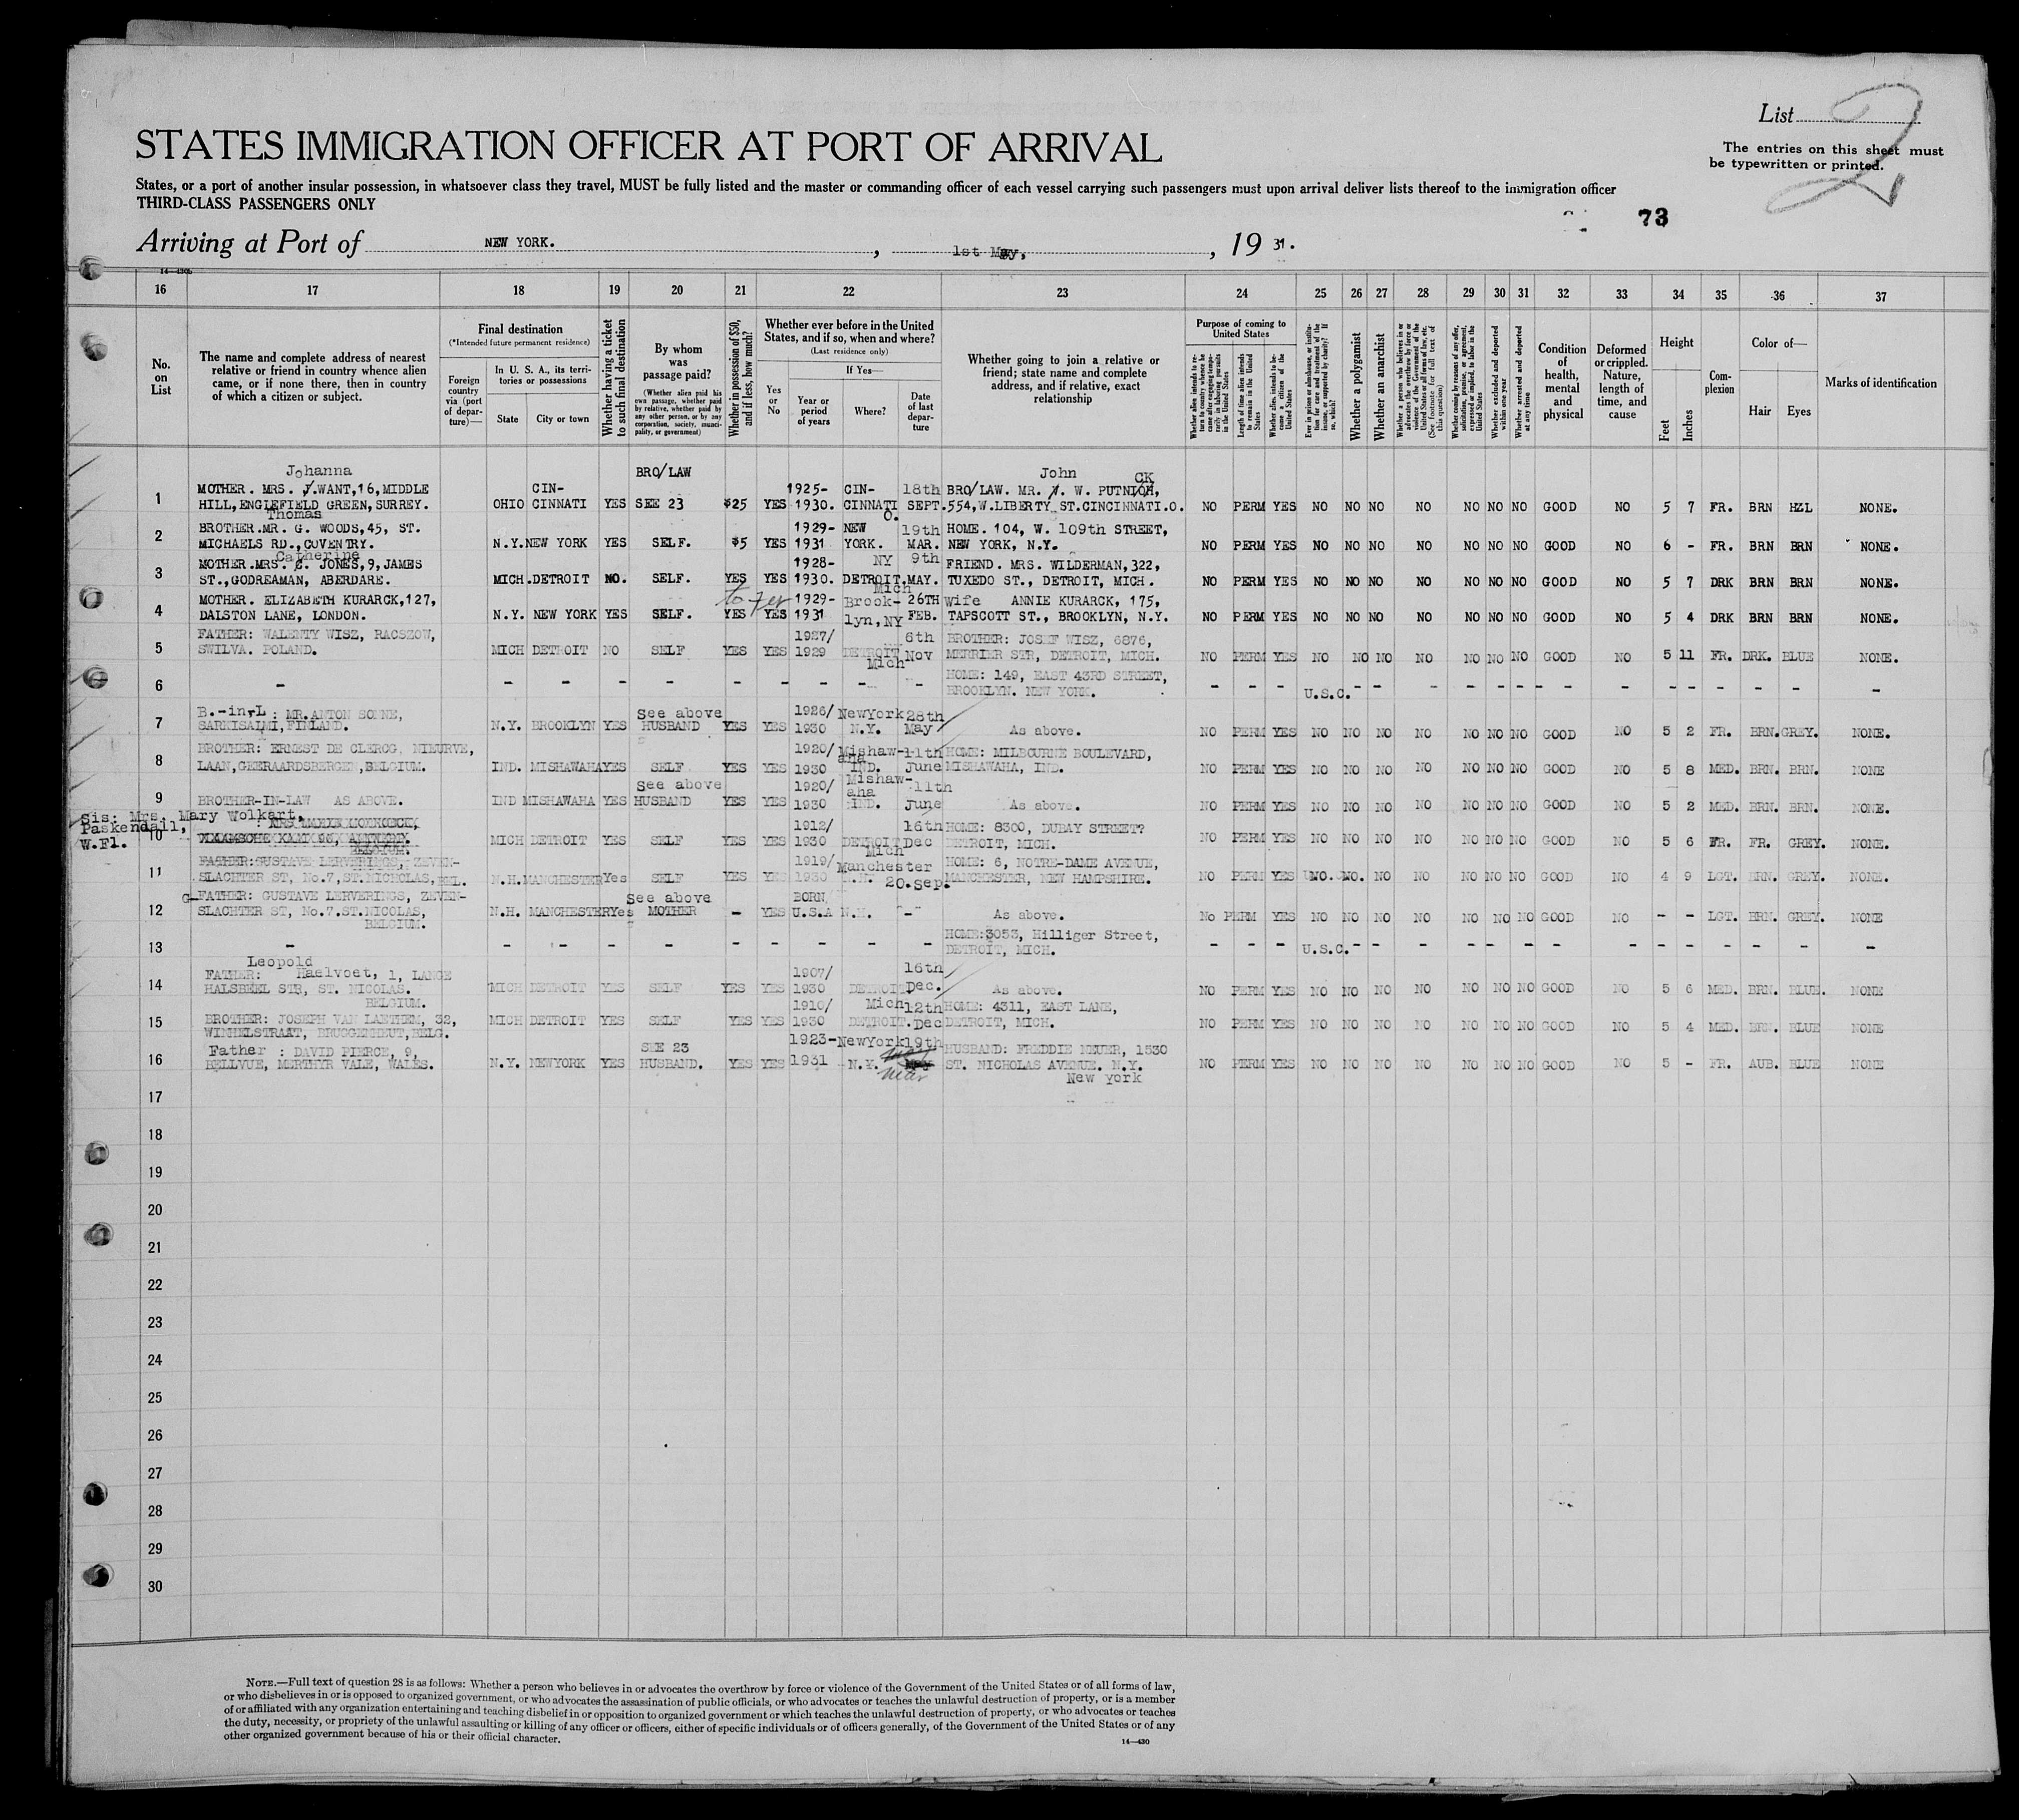 List 2
The entries on this sheet must
be typewritten or printed.
STATES IMMIGRATION OFFICER AT PORT OF ARRIVAL
States, or a port of another insular possession, in whatsoever class they travel, MUST be fully listed and the master or commanding officer of each vessel carrying such passengers must upon arrival deliver lists thereof to the immigration officer
THIRD-CLASS PASSENGERS ONLY
73
Arriving at Port of NEW YORK. , 1st May, , 19 31.
14—430b
16 17 18 19 20 21 22 23 24 25 26 27 28 29 30 31 32 33 34 35 36 37
No. on List
The name and complete address of nearest relative or friend in country whence alien came, or if none there, then in country of which a citizen or subject.
Final destination
(*Intended future permanent residence)
Foreign country via (port of departure)—
In U. S. A., its territories or possessions
State
City or town
Whether having a ticket to such final destination
By whom was passage paid?
(Whether alien paid his own passage, whether paid by relative, whether paid by any other person, or by any corporation, society, municipality, or government)
Whether in possession of $50, and if less, how much?
Whether ever before in the United States, and if so, when and where?
(Last residence only)
Yes or No
If Yes—
Year or period of years
Where?
Date of last departure
Whether going to join a relative or friend; state name and complete address, and if relative, exact relationship
Purpose of coming to United States
Whether alien intends to return to country whence he came after engaging temporarily in laboring pursuits in the United States
Length of time alien intends to remain in the United States
Whether alien intends to become a citizen of the United States
Ever in prison or almshouse, or institution for care and treatment of the insane, or supported by charity? If so, which?
Whether a polygamist
Whether an anarchist
Whether a person who believes in or advocates the overthrow by force or violence of the Government of the United States or all forms of law, etc. (See footnote for full text of this question)
Whether coming by reasons of any offer, solicitation, promise, or agreement, expressed or implied, to labor in the United States
Whether excluded and deported within one year
Whether arrested and deported at any time
Condition of health, mental and physical
Deformed or crippled. Nature, length of time, and cause
Height
Feet
Inches
Complexion
Color of—
Hair
Eyes
Marks of identification
Johanna BRO/LAW John CK
1 MOTHER. MRS. J.WANT,16,MIDDLE CIN- 1925- CIN- 18th BRO/LAW. MR. W. PUTNICH,
HILL,ENGLEFIELD GREEN,SURREY. OHIO CINNATI YES SEE 23 $25 YES 1930. CINNATI O. SEPT. 554,W.LIBERTY ST.CINCINNATI.O. NO PERM YES NO NO NO NO NO NO NO GOOD NO 5 7 FR. BRN HZL NONE.
Thomas
2 BROTHER.MR. G. WOODS,45, ST. 1929- NEW 19th HOME. 104, W. 109th STREET,
MICHAELS RD.,COVENTRY. N.Y. NEW YORK YES SELF. $5 YES 1931 YORK. NY MAR. NEW YORK, N.Y. NO PERM YES NO NO NO NO NO NO NO GOOD NO 6 - FR. BRN BRN NONE.
Catherine
3 MOTHER.MRS. JONES,9,JAMES 1928- 9th FRIEND. MRS. WILDERMAN,322,
ST.,GODREAMAN, ABERDARE. MICH. DETROIT NO. SELF. YES YES 1930. DETROIT, Mich MAY. TUXEDO ST., DETROIT, MICH. NO PERM YES NO NO NO NO NO NO NO GOOD NO 5 7 DRK BRN BRN NONE.
4 MOTHER. ELIZABETH KURARCK,127, 1929- Brook- 26TH Wife ANNIE KURARCK, 175,
DALSTON LANE, LONDON. N.Y. NEW YORK YES SELF. YES YES 1931 lyn,NY FEB. TAPSCOTT ST., BROOKLYN, N.Y. NO PERM YES NO NO NO NO NO NO NO GOOD NO 5 4 DRK BRN BRN NONE.
5 FATHER: WALENTY WISZ, RACSZOW, 1927/ 6th BROTHER: JOSEF WISZ, 6876,
SWILVA. POLAND. MICH DETROIT NO SELF YES YES 1929 DETROIT Mich Nov MERRIER STR, DETROIT, MICH. NO PERM YES NO NO NO NO NO NO NO GOOD NO 5 11 FR. DRK. BLUE NONE.
6 - - - - - - - - - - HOME: 149, EAST 43RD STREET,
BROOKLYN. NEW YORK. - - - U.S.C. - - - - - - - - - - - - - -
7 B.-in-L : MR.ANTON SONNE, See above 1926/ NewYork 28th
SARKISALMI,FINLAND. N.Y. BROOKLYN YES HUSBAND YES YES 1930 N.Y. May As above. NO PERM YES NO NO NO NO NO NO NO GOOD NO 5 2 FR. BRN. GREY. NONE.
8 BROTHER: ERNEST DE CLERCG, NIEURVE, 1920/ Mishaw- 11th HOME: MILBOURNE BOULEVARD,
LAAN,GEERAARDSBERGEN,BELGIUM. IND. MISHAWAHA YES SELF YES YES 1930 aha IND. June MISHAWAHA, IND. NO PERM YES NO NO NO NO NO NO NO GOOD NO 5 8 MED. BRN. BRN. NONE
9 See above 1920/ Mishaw-aha 11th
BROTHER-IN-LAW AS ABOVE. IND MISHAWAHA YES HUSBAND YES YES 1930 IND. June As above. NO PERM YES NO NO NO NO NO NO NO GOOD NO 5 2 MED. BRN. BRN. NONE.
Sis: Mrs. Mary Wolkart,
Paskendail,
W.Fl.
10 1912/ 16th HOME: 8300, DUBAY STREET?
BELGIUM. MICH DETROIT YES SELF YES YES 1930 DETROIT Mich Dec DETROIT, MICH. NO PERM YES NO NO NO NO NO NO NO GOOD NO 5 6 FR. FR. GREY. NONE.
11 FATHER:GUSTAVE LERVERINGS, ZEVEN- 1919/ Manchester HOME: 6, NOTRE-DAME AVENUE,
SLACHTER ST, No.7,ST.NICHOLAS,BEL. N.H. MANCHESTER Yes SELF YES YES 1930 N.H. 20.sep. MANCHESTER, NEW HAMPSHIRE. NO PERM YES NO. NO. NO NO NO NO NO GOOD NO 4 9 LGT. BRN. GREY. NONE.
12 G-FATHER: GUSTAVE LERVERINGS, ZEVEN- See above BORN
SLACHTER ST, No.7.ST.NICOLAS, N.H. MANCHESTER Yes MOTHER - YES U.S.A N.H. - As above. No PERM YES NO NO NO NO NO NO NO GOOD NO - - LGT. BRN. GREY. NONE
BELGIUM.
13 - - - - - - - - - - HOME:3053, Hilliger Street,
DETROIT, MICH. - - - U.S.C. - - - - - - - - - - - - - -
Leopold
14 FATHER: Haelvoet, 1, LANGE 1907/ 16th
HALSBEEL STR, ST. NICOLAS. MICH DETROIT YES SELF YES YES 1930 DETROIT Mich Dec. As above. NO PERM YES NO NO NO NO NO NO NO GOOD NO 5 6 MED. BRN. BLUE. NONE
BELGIUM.
15 BROTHER: JOSEPH VAN LAETHEM, 32, 1910/ 12th HOME: 4311, EAST LANE,
WINKELSTRAAT, BRUGGENHOUT,BELG. MICH DETROIT YES SELF YES YES 1930 DETROIT. Dec DETROIT, MICH. NO PERM YES NO NO NO NO NO NO NO GOOD NO 5 4 MED. BRN. BLUE NONE
16 Father : DAVID PIERCE, 9, SEE 23 1923- NewYork 19th HUSBAND: FREDDIE MEUER, 1530
BELLVUE, MERTHYR VALE, WALES. N.Y. NEWYORK YES HUSBAND. YES YES 1931 N.Y. Mar ST. NICHOLAS AVENUE. N.Y. NO PERM YES NO NO NO NO NO NO NO GOOD NO 5 - FR. AUB. BLUE NONE
New York
17
18
19
20
21
22
23
24
25
26
27
28
29
30
NOTE.—Full text of question 28 is as follows: Whether a person who believes in or advocates the overthrow by force or violence of the Government of the United States or of all forms of law,
or who disbelieves in or is opposed to organized government, or who advocates the assassination of public officials, or who advocates or teaches the unlawful destruction of property, or is a member
of or affiliated with any organization entertaining and teaching disbelief in or opposition to organized government or which teaches the unlawful destruction of property, or who advocates or teaches
the duty, necessity, or propriety of the unlawful assaulting or killing of any officer or officers, either of specific individuals or of officers generally, of the Government of the United States or of any
other organized government because of his or their official character.
14—430